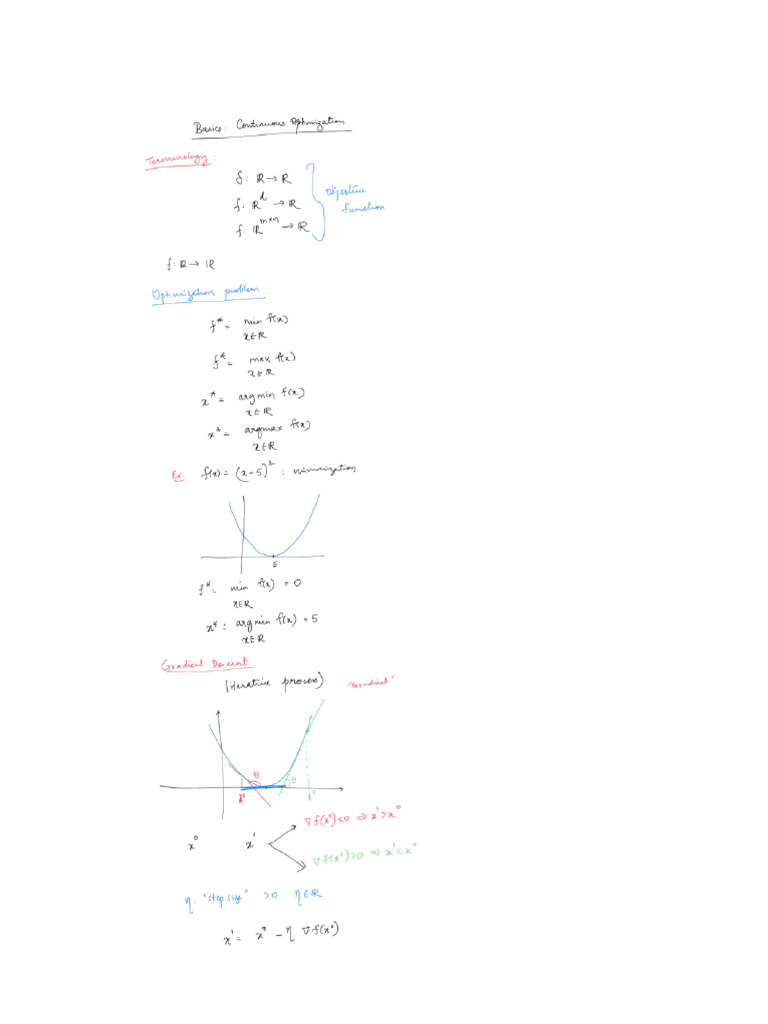 Basics: Continuous Optimization
Terminology:
f: ℝ → ℝ
f: ℝ^d → ℝ
f: ℝ^{m×n} → ℝ
Objective
function
f: ℝ → ℝ
Optimization problem:
f* = min f(x)
x∈ℝ
f* = max f(x)
x∈ℝ
x* = argmin f(x)
x∈ℝ
x* = argmax f(x)
x∈ℝ
Ex: f(x) = (x-5)^2 : minimization
5
f* = min f(x) = 0
x∈ℝ
x* = argmin f(x) = 5
x∈ℝ
Gradient Descent
(iterative process)
θ
θ
x^0
x^0
x^0
x^1
∇f(x^0)<0 ⇒ x^1>x^0
∇f(x^0)>0 ⇒ x^1<x^0
η: "step size" >0 η∈ℝ
x^1 = x^0 - η ∇f(x^0)